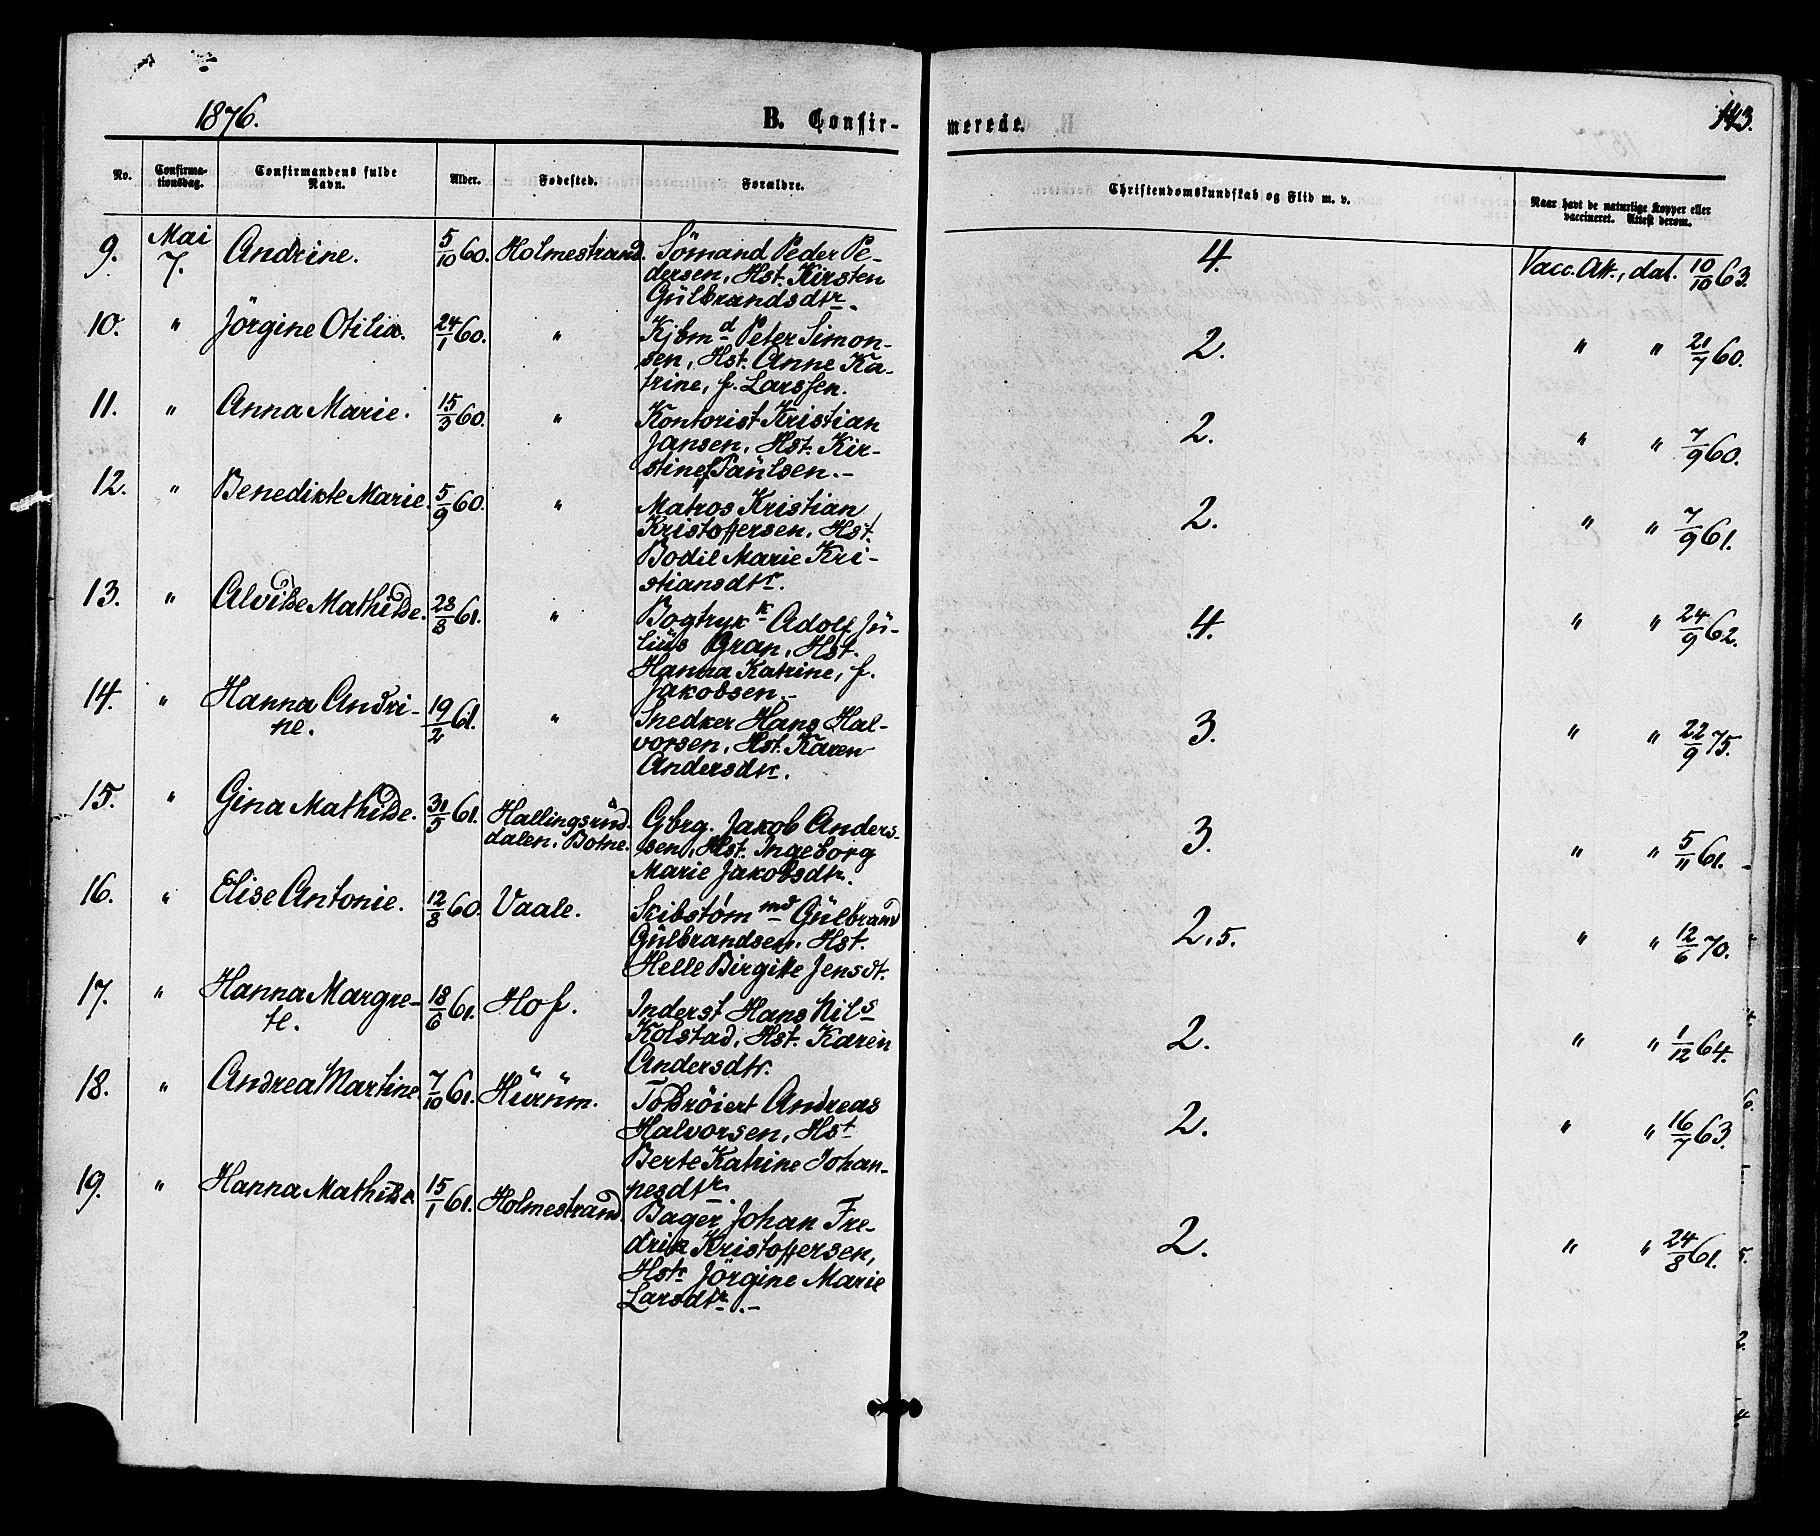 1876.
B. Confir-
merede.
143.
No.
Confirma-
tionsdag.
Confirmandens fulde
Navn.
Alder.
Fødested.
Forældre.
Christendomskundskab og Flid m. v.
Naar havt de naturlige Kopper eller
vaccineret. Attest derom.
9. Mai 7. Andrine. 5/10 60. Holmestrand. Sömand Peder Pe-
dersen, Hst. Kirsten
Gülbrandsdtr.
4. Vacc. Att., dat. 10/10 63.
10. " Jörgine Otilia. 24/1 60. " Kjbmd Peter Simon-
sen, Hst. Anne Ka-
trine, f. Larssen.
2. " " 21/7 60.
11. " Anna Marie. 15/3 60. " Kontorist Kristian
Jansen, Hst. Kir-
stine f. Paülsen.-
2. " " 7/9 60.
12. " Benedikte Marie. 5/9 60. " Matros Kristian
Kristoffersen, Hst.
Bodil Marie Kri-
stiansdtr.
2. " " 7/9 61.
13. " Alvilde Mathilde. 28/3 61. " Bogtrykk Adolf Jü-
liüs Gran, Hst.
Hanna Katrine, f.
Jakobsen.-
4. " " 24/9 62.
14. " Hanna Andri-
ne. 19/2 61. " Snedker Hans Hal-
vorsen, Hst. Karen
Andersdtr.
3. " " 22/9 75.
15. " Gina Mathilde. 31/5 61. Hallingsrüd-
dalen, Botne. Gbrg. Jakob Anders-
sen, Hst. Ingeborg
Marie Jakobsdtr.
3. " " 5/11 61.
16. " Elise Antonie. 12/8 60. Vaale. Skibstømmd Gülbrand
Gülbrandsen, Hst.
Helle Birgitte Jensdt.
2,5. " " 12/6 70.
17. " Hanna Margre-
te. 18/6 61. Hof. Inderst Hans Nils
Kolstad, Hst. Karen
Andersdtr.
2. " " 1/12 64.
18. " Andrea Martine. 7/10 61. Hürüm. Todröiert Andreas
Halvorsen, Hst
Berte Katrine Johan-
nesdtr.
2. " " 16/7 63.
19. " Hanna Mathilde. 15/1 61. Holmestrand. Bager Johan Fre-
drik Kristoffersen,
Hstr Jörgine Marie
Larsdtr.-
2. " " 24/8 61.